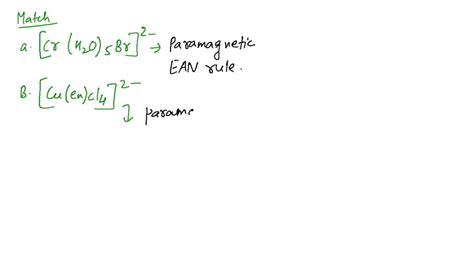 Match
a. [Cr(H₂O)₅Br]²⁻ → Paramagnetic
EAN rule.
B. [Cu(en)Cl₄]²⁻
↓ parame